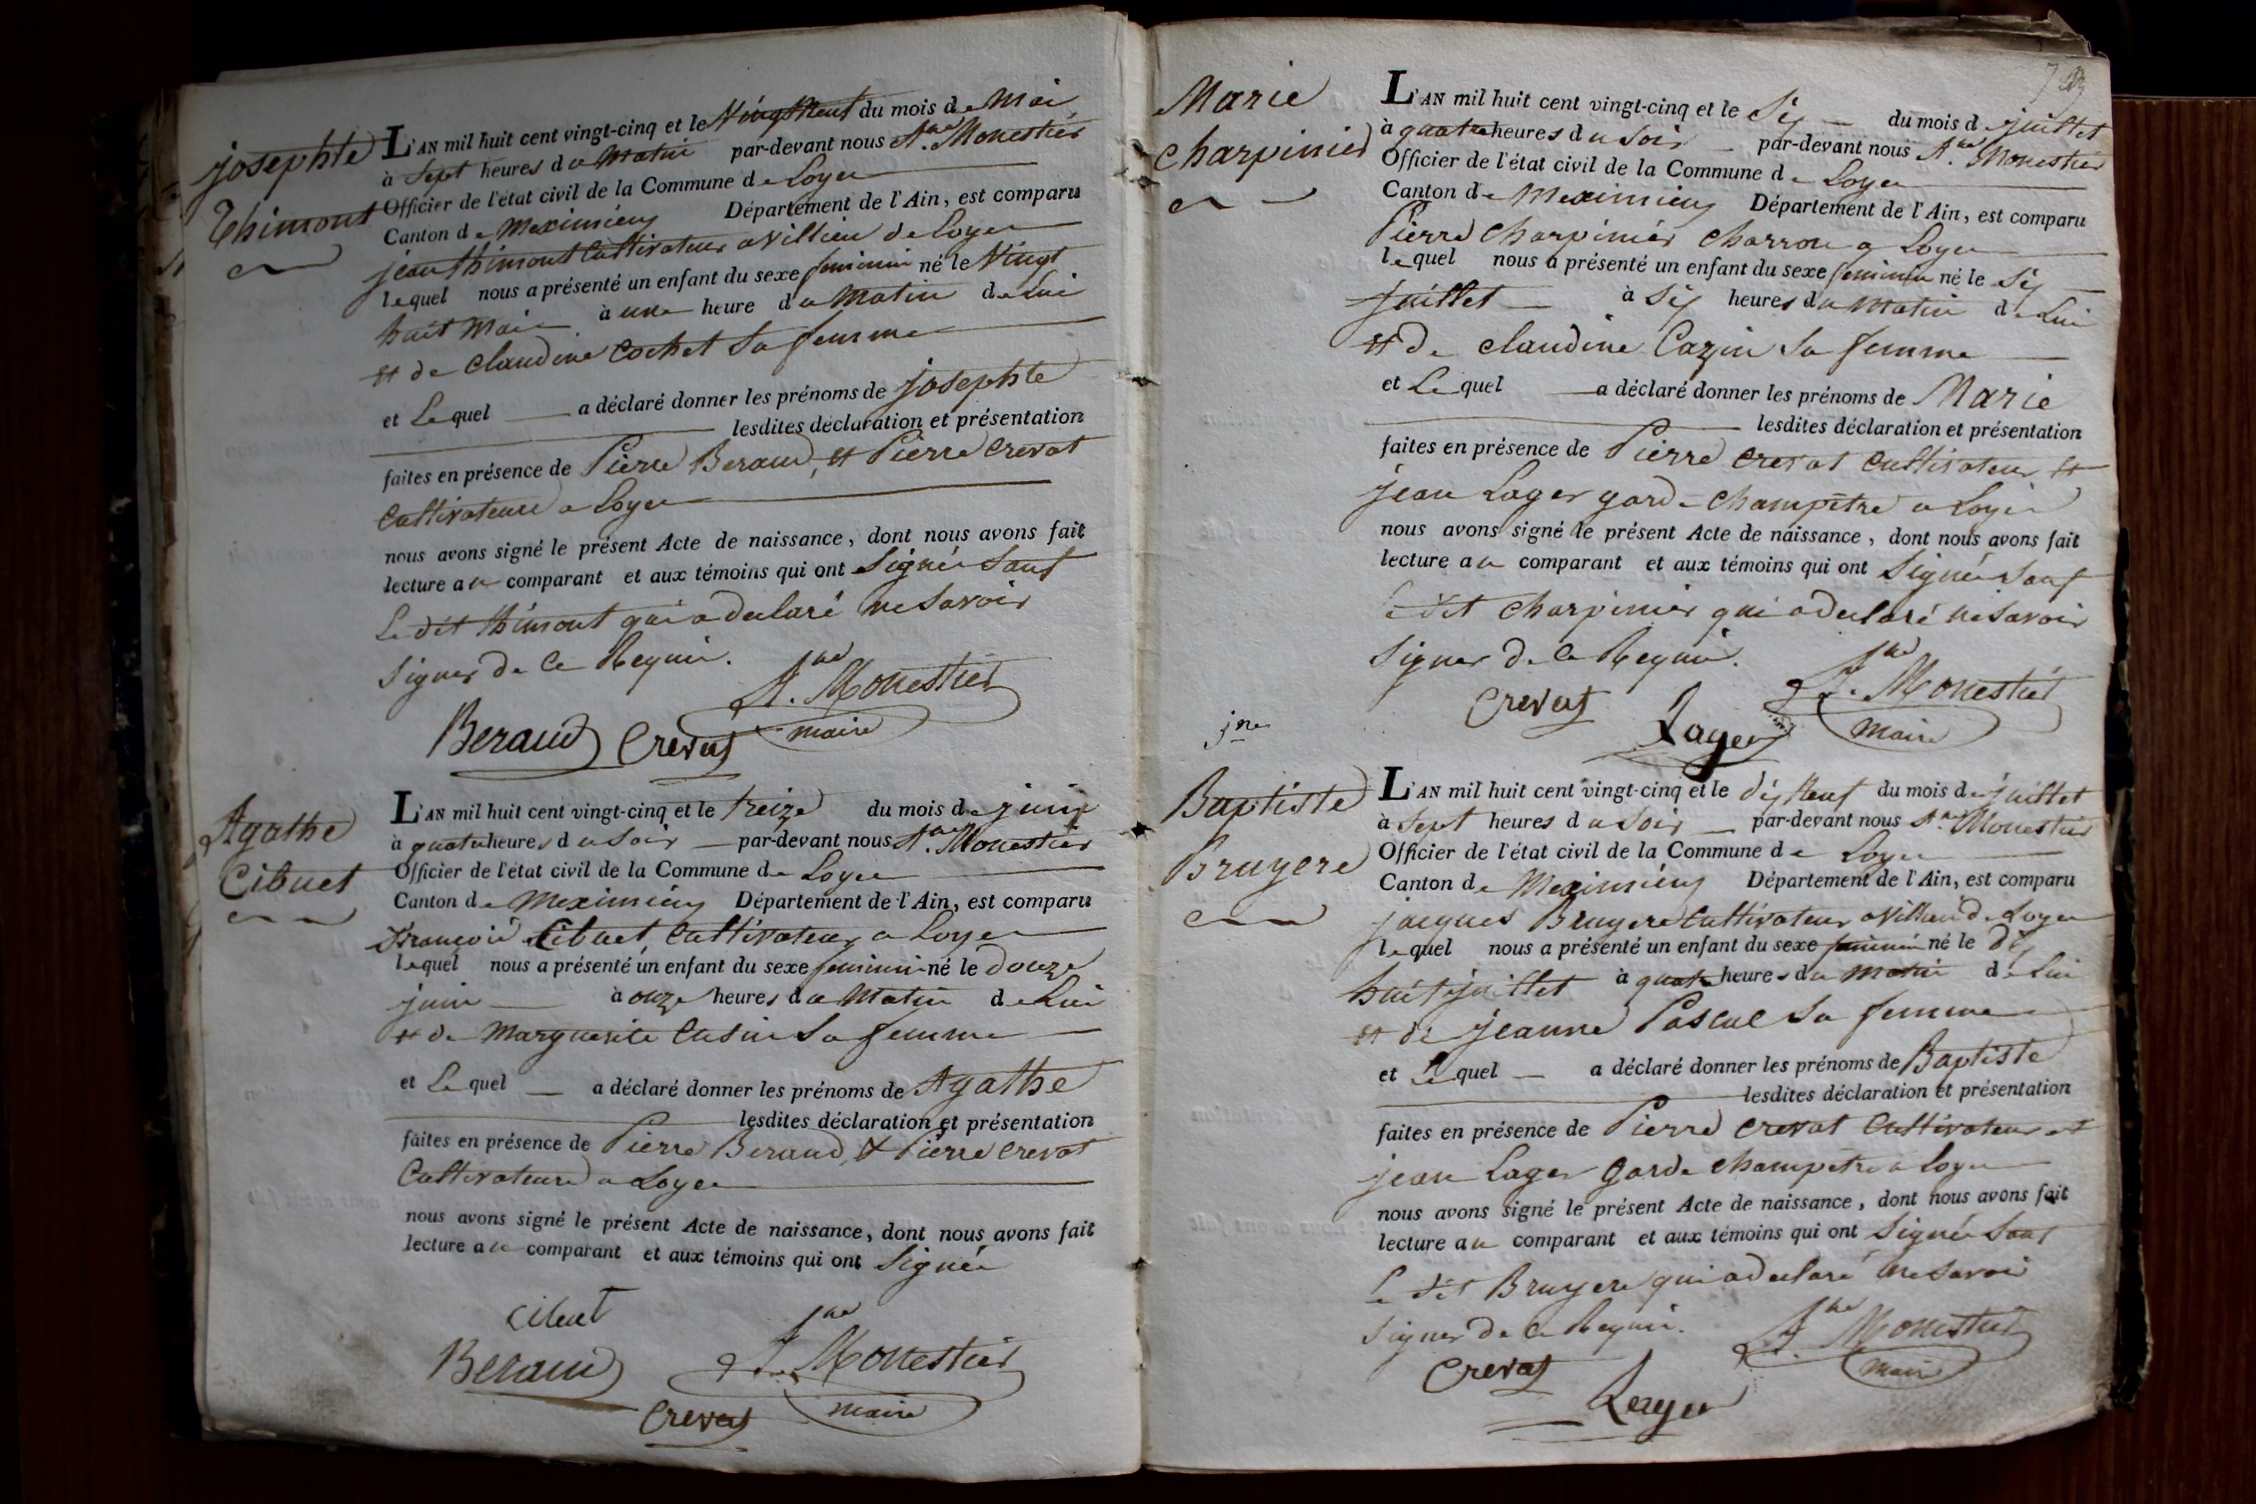 josephte
Thimont
L'AN mil huit cent vingt-cinq et le Vingt Neuf du mois de Mai
à Sept heures du Matin par-devant nous A.ne Monestier
Officier de l'état civil de la Commune de Loyes
Canton de Meximieux Département de l'Ain, est comparu
jean Thimont Cultivateur a Villieu de Loyes
lequel nous a présenté un enfant du sexe feminin né le Vingt
huit Mai à une heure du Matin de Lui
et de Claudine Cochet Sa femme
et Le quel a déclaré donner les prénoms de josephte
lesdites déclaration et présentation
faites en présence de Pierre Beraud, et Pierre Crevat
Cultivateurs a Loyes
nous avons signé le présent Acte de naissance, dont nous avons fait
lecture au comparant et aux témoins qui ont Signés Sauf
Le dit Thimont qui a declaré ne Savoir
Signer de ce Requis.
A.ne Monestier
maire
Beraud Crevat
Agathe
Cibuet
L'AN mil huit cent vingt-cinq et le treize du mois de juin
à quatre heures du Soir par-devant nous A.ne Monestier
Officier de l'état civil de la Commune de Loyes
Canton de Meximieux Département de l'Ain, est comparu
François Cibuet, Cultivateur a Loyes
lequel nous a présenté un enfant du sexe feminin né le douze
juin à onze heures du Matin de Lui
et de Marguerite Cusin Sa femme
et Le quel a déclaré donner les prénoms de Agathe
lesdites déclaration et présentation
faites en présence de Pierre Beraud, & Pierre Crevat
Cultivateurs a Loyes
nous avons signé le présent Acte de naissance, dont nous avons fait
lecture au comparant et aux témoins qui ont Signés
Cibuet
A.ne Monestier
Beraud
maire
Crevat
Marie
Charpinier
L'AN mil huit cent vingt-cinq et le Six du mois de juillet
à quatre heures du Soir par-devant nous A.ne Monestier
Officier de l'état civil de la Commune de Loyes
Canton de Meximieux Département de l'Ain, est comparu
Pierre Charpinier Charron a Loyes
lequel nous a présenté un enfant du sexe feminin né le Six
juillet à Six heures du Matin de Lui
et de Claudine Cazin Sa femme
et Le quel a déclaré donner les prénoms de Marie
lesdites déclaration et présentation
faites en présence de Pierre Crevat Cultivateur et
jean Lager garde Champêtre a Loyes
nous avons signé le présent Acte de naissance, dont nous avons fait
lecture au comparant et aux témoins qui ont Signés Sauf
Le dit Charpinier qui a declaré ne Savoir
Signer de ce Requis.
A.ne Monestier
maire
Crevat
Lager
jne
Baptiste
Bruyere
L'AN mil huit cent vingt-cinq et le dix Neuf du mois de juillet
à Sept heures du Soir par-devant nous A.ne Monestier
Officier de l'état civil de la Commune de Loyes
Canton de Meximieux Département de l'Ain, est comparu
jacques Bruyere Cultivateur a Villieu de Loyes
lequel nous a présenté un enfant du sexe feminin né le dix
huit juillet à quatre heures du Matin de Lui
et de jeanne Pascal Sa femme
et Le quel a déclaré donner les prénoms de Baptiste
lesdites déclaration et présentation
faites en présence de Pierre Crevat Cultivateur et
jean Lager Garde Champetre a Loyes
nous avons signé le présent Acte de naissance, dont nous avons fait
lecture au comparant et aux témoins qui ont Signés Sauf
Le dit Bruyere qui a declaré ne Savoir
Signer de ce Requis.
A.ne Monestier
maire
Crevat
Lager